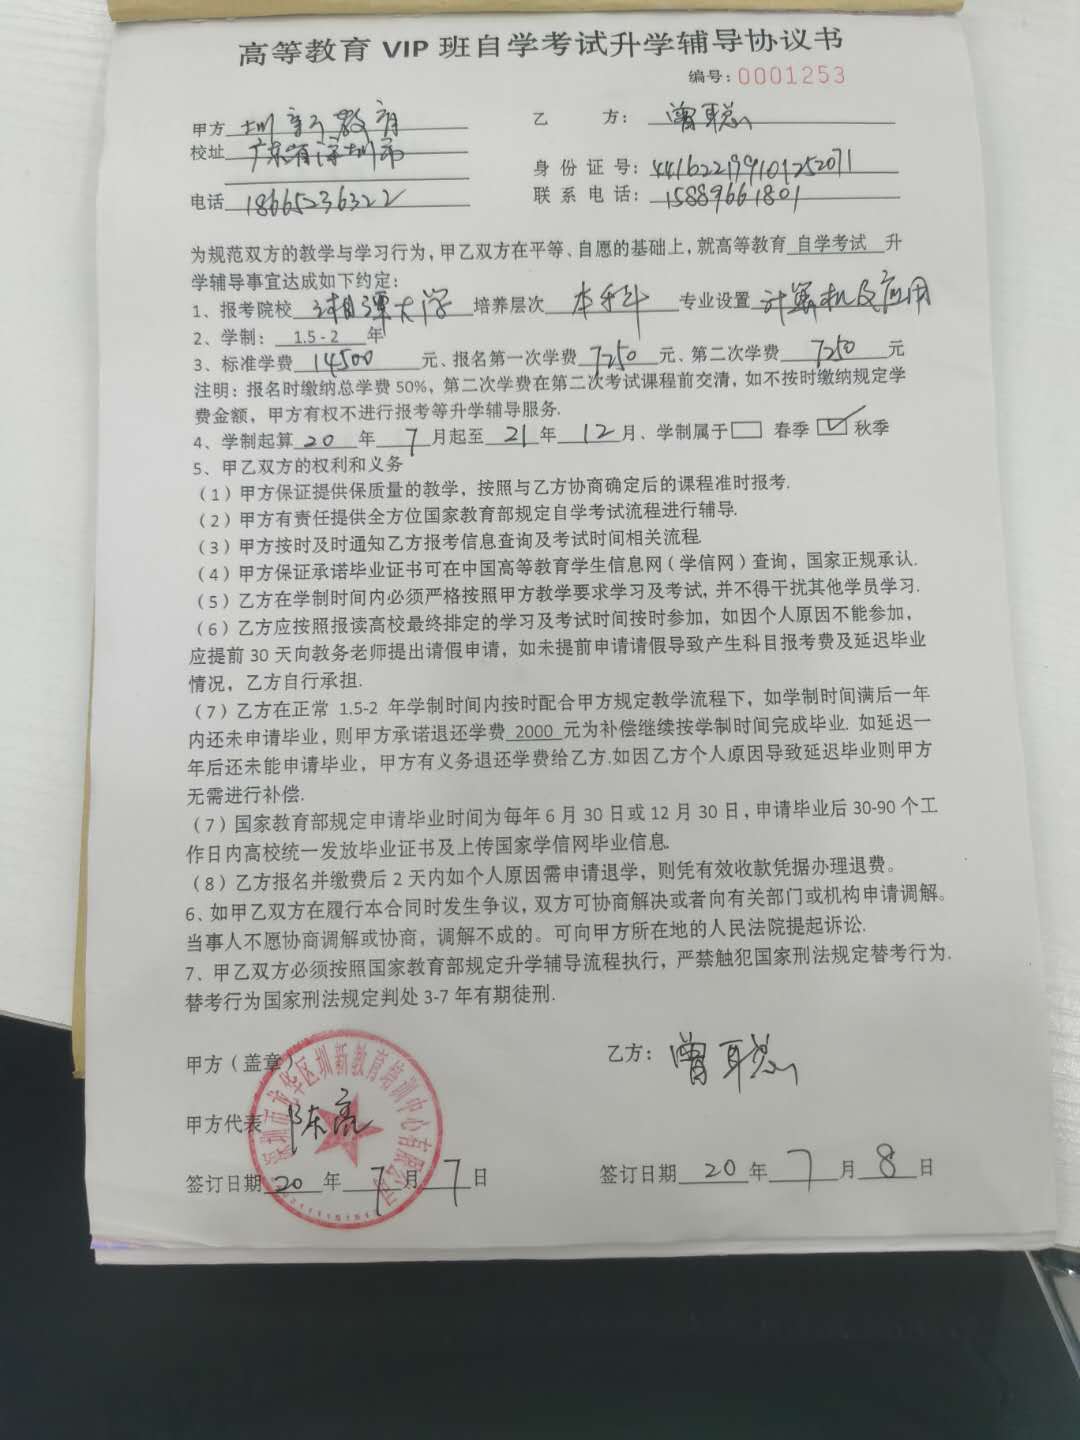 高等教育 VIP 班自学考试升学辅导协议书
编号：0001253
甲方 圳新教育 乙 方： 曾聪
校址 广东省深圳市 身份证号：441622199101252071
电话 18665236322 联系电话：15889661801
为规范双方的教学与学习行为，甲乙双方在平等、自愿的基础上，就高等教育 自学考试 升
学辅导事宜达成如下约定：
1、报考院校 湘潭大学 培养层次 本科 专业设置 计算机及应用
2、学制： 1.5-2 年
3、标准学费 14500 元、报名第一次学费 7250 元、第二次学费 7250 元
注明：报名时缴纳总学费 50%，第二次学费在第二次考试课程前交清，如不按时缴纳规定学
费金额，甲方有权不进行报考等升学辅导服务.
4、学制起算 20 年 7 月起至 21 年 12 月、学制属于□ 春季 ☑ 秋季
5、甲乙双方的权利和义务
（1）甲方保证提供保质量的教学，按照与乙方协商确定后的课程准时报考.
（2）甲方有责任提供全方位国家教育部规定自学考试流程进行辅导.
（3）甲方按时及时通知乙方报考信息查询及考试时间相关流程.
（4）甲方保证承诺毕业证书可在中国高等教育学生信息网（学信网）查询，国家正规承认.
（5）乙方在学制时间内必须严格按照甲方教学要求学习及考试，并不得干扰其他学员学习.
（6）乙方应按照报读高校最终排定的学习及考试时间按时参加，如因个人原因不能参加，
应提前 30 天向教务老师提出请假申请，如未提前申请请假导致产生科目报考费及延迟毕业
情况，乙方自行承担.
（7）乙方在正常 1.5-2 年学制时间内按时配合甲方规定教学流程下，如学制时间满后一年
内还未申请毕业，则甲方承诺退还学费 2000 元为补偿继续按学制时间完成毕业. 如延迟一
年后还未能申请毕业，甲方有义务退还学费给乙方.如因乙方个人原因导致延迟毕业则甲方
无需进行补偿.
（7）国家教育部规定申请毕业时间为每年 6 月 30 日或 12 月 30 日，申请毕业后 30-90 个工
作日内高校统一发放毕业证书及上传国家学信网毕业信息.
（8）乙方报名并缴费后 2 天内如个人原因需申请退学，则凭有效收款凭据办理退费。
6、如甲乙双方在履行本合同时发生争议，双方可协商解决或者向有关部门或机构申请调解。
当事人不愿协商调解或协商，调解不成的。可向甲方所在地的人民法院提起诉讼.
7、甲乙双方必须按照国家教育部规定升学辅导流程执行，严禁触犯国家刑法规定替考行为.
替考行为国家刑法规定判处 3-7 年有期徒刑.
甲方（盖章） 乙方： 曾聪
深圳市龙华区圳新教育培训中心有限公司
甲方代表 陈亮
签订日期 20 年 7 月 7 日 签订日期 20 年 7 月 8 日